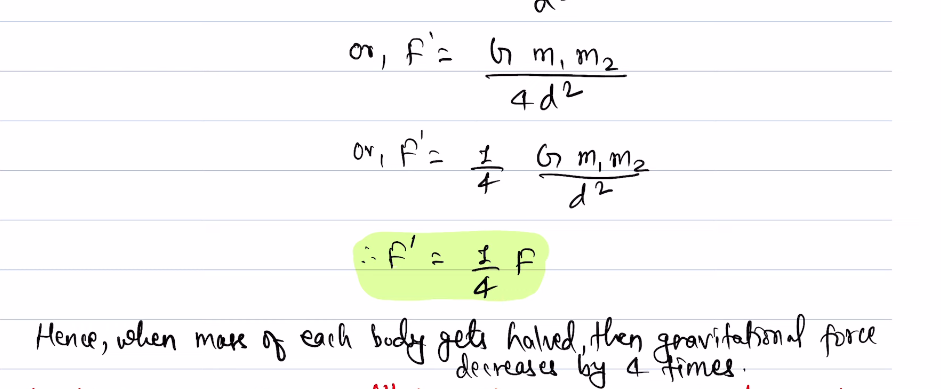 or, F' = G m₁ m₂ / 4 d²
or, F' = 1/4 G m₁ m₂ / d²
∴ F' = 1/4 F
Hence, when mass of each body gets halved, then gravitational force
decreases by 4 times.